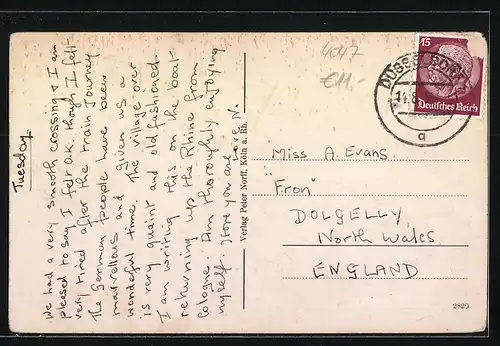 Tuesday
We had a very smooth crossing & I am
pleased to say I felt O.K. though I felt
very tired after the train journey
The German people have been
marvellous and given us a
wonderful time. The village over
is very quaint and old fashioned.
I am writing this on the boat
returning up the Rhine from
Cologne. Am thoroughly enjoying
myself. Hope you are
Love N.
Verlag Peter Norff, Köln a. Rh.
4047
€11,-
15
Deutsches Reich
a
Miss A. Evans.
"Fron"
DOLGELLY
North Wales
ENGLAND
2829